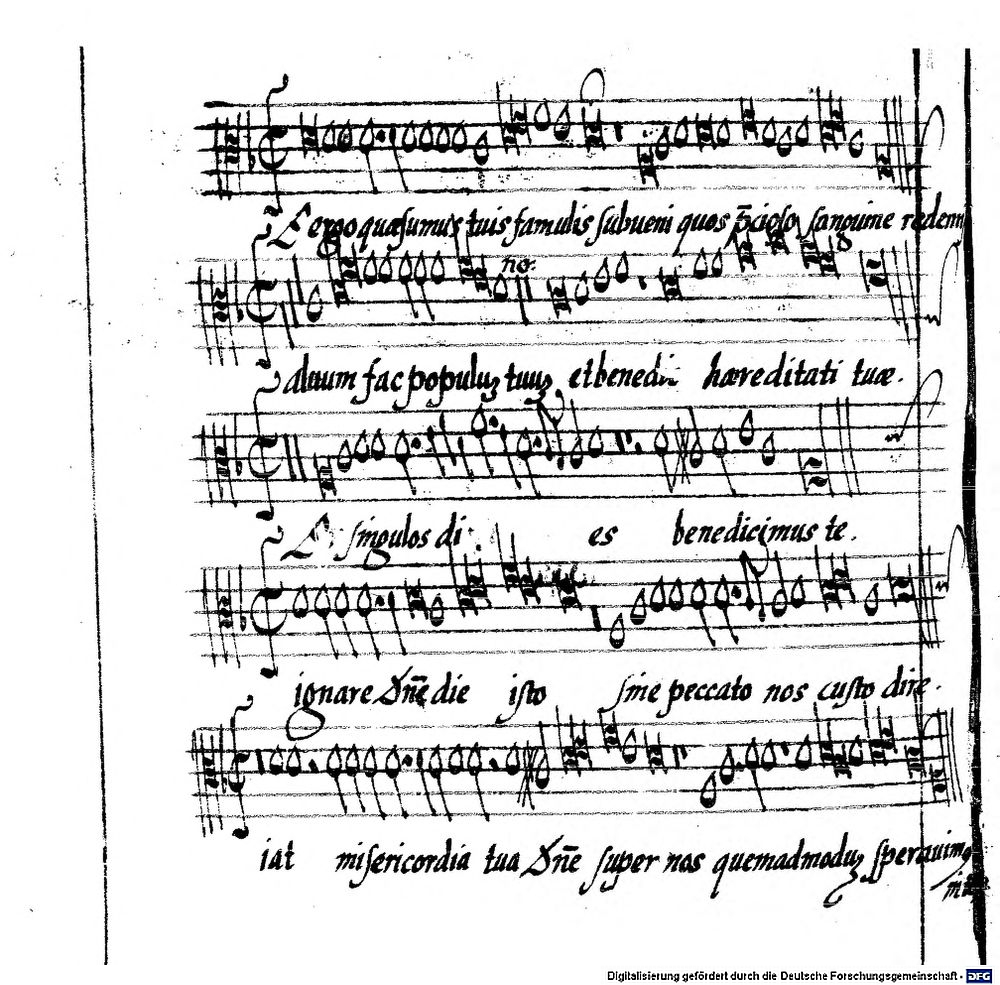 E ergo quæsumus tuis famulis subueni quos p̄cioso sanguine redemi
no:
aluum fac populuȝ tuuȝ et benedic hæreditati tuæ.
Er singulos di es benedicimus te.
ignare Dn̄e die isto sine peccato nos custo dire.
iat misericordia tua Dn̄e super nos quemadmoduȝ sperauim9
Digitalisierung gefördert durch die Deutsche Forschungsgemeinschaft - DFG